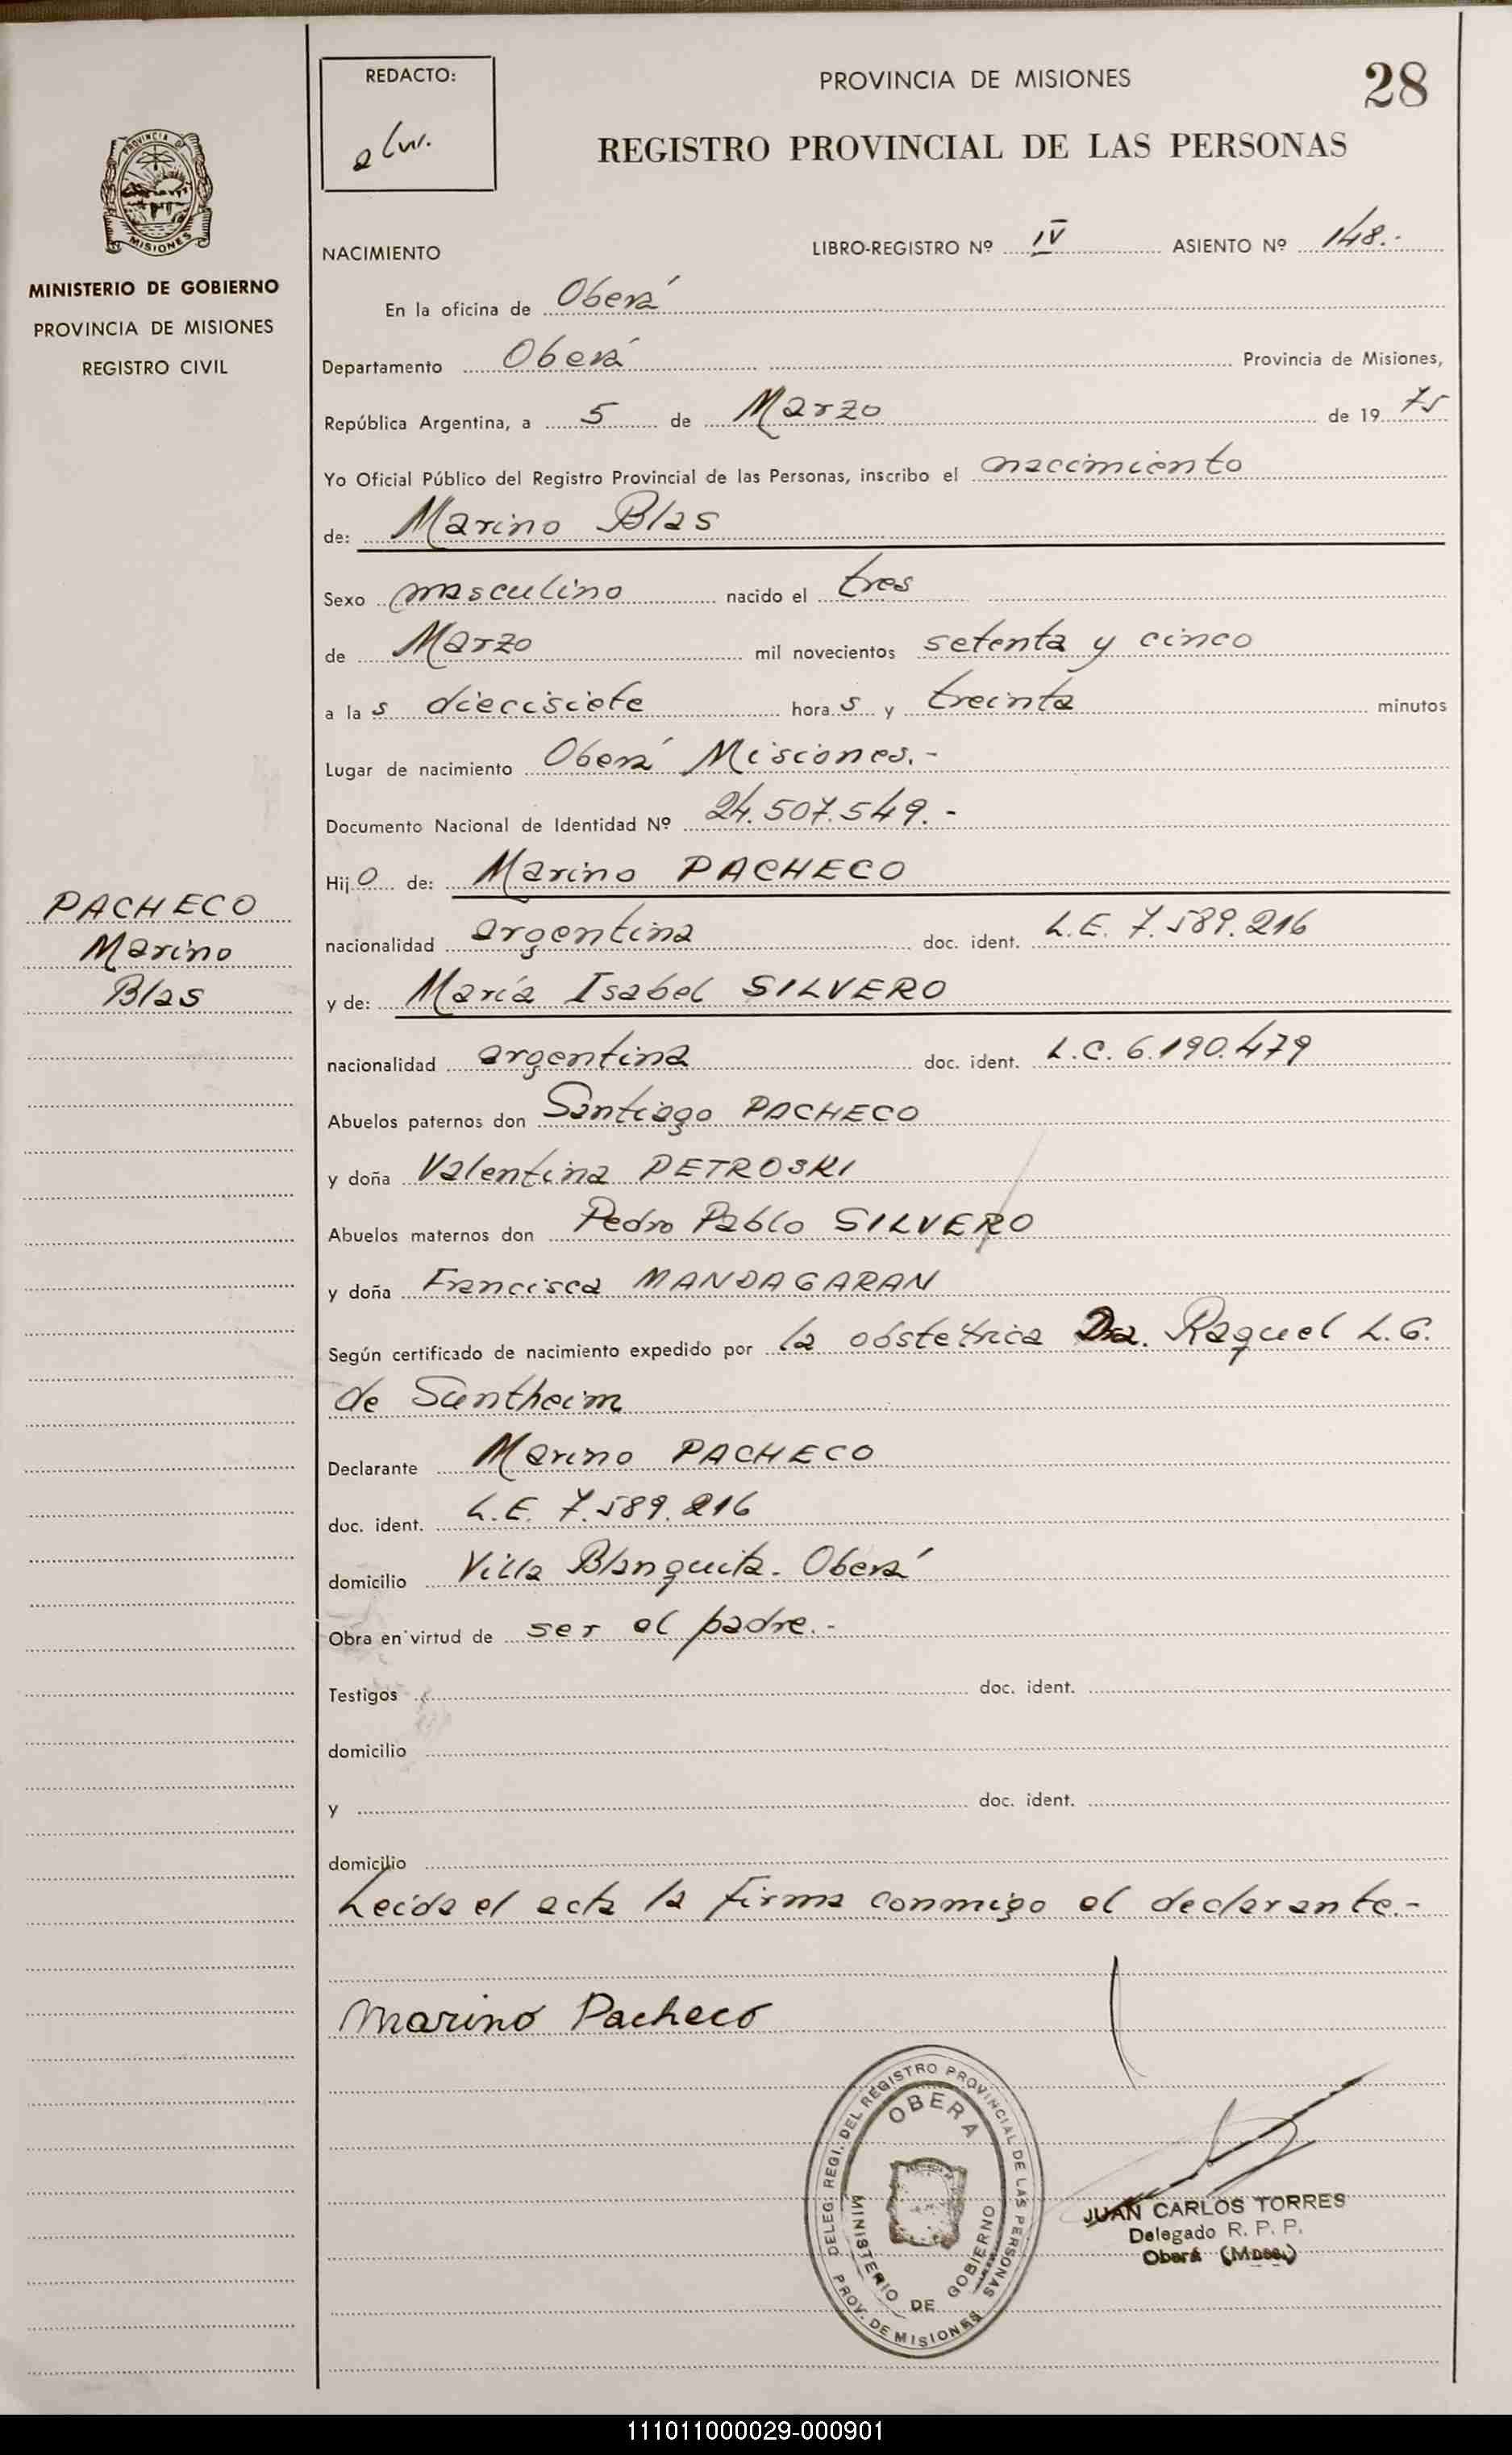 28
REDACTO:
PROVINCIA DE MISIONES
REGISTRO PROVINCIAL DE LAS PERSONAS
PROVINCIA D
MISIONES
MINISTERIO DE GOBIERNO
PROVINCIA DE MISIONES
REGISTRO CIVIL
NACIMIENTO LIBRO-REGISTRO Nº IV ASIENTO Nº 148.-
En la oficina de Oberá
Departamento Oberá Provincia de Misiones,
República Argentina, a 5 de Marzo de 1975
Yo Oficial Público del Registro Provincial de las Personas, inscribo el nacimiento
de: Marino Blas
Sexo masculino nacido el tres
de Marzo mil novecientos setenta y cinco
a las diecisiete horas y treinta minutos
Lugar de nacimiento Oberá Misiones.-
Documento Nacional de Identidad Nº 24.507.549.-
Hijo de: Marino PACHECO
nacionalidad argentina doc. ident. L.E. 7.589.216
y de: María Isabel SILVERO
nacionalidad argentina doc. ident. L.C. 6.190.479
PACHECO
Marino
Blas
Abuelos paternos don Santiago PACHECO
y doña Valentina PETROSKI
Abuelos maternos don Pedro Pablo SILVERO
y doña Francisca MANDAGARAN
Según certificado de nacimiento expedido por la obstetrica Dra. Raquel L.G.
de Suntheim
Declarante Marino PACHECO
doc. ident. L.E. 7.589.216
domicilio Villa Blanquita. Oberá
Obra en virtud de ser el padre.-
Testigos doc. ident.
domicilio
y doc. ident.
domicilio
Leída el acta la firma conmigo el declarante.-
Marino Pacheco
DELEG. REGI. DEL REGISTRO PROVINCIAL DE LAS PERSONAS
OBERA
MINISTERIO DE GOBIERNO
PROV. DE MISIONES
JUAN CARLOS TORRES
Delegado R. P. P.
Oberá (Mnes.)
111011000029-000901